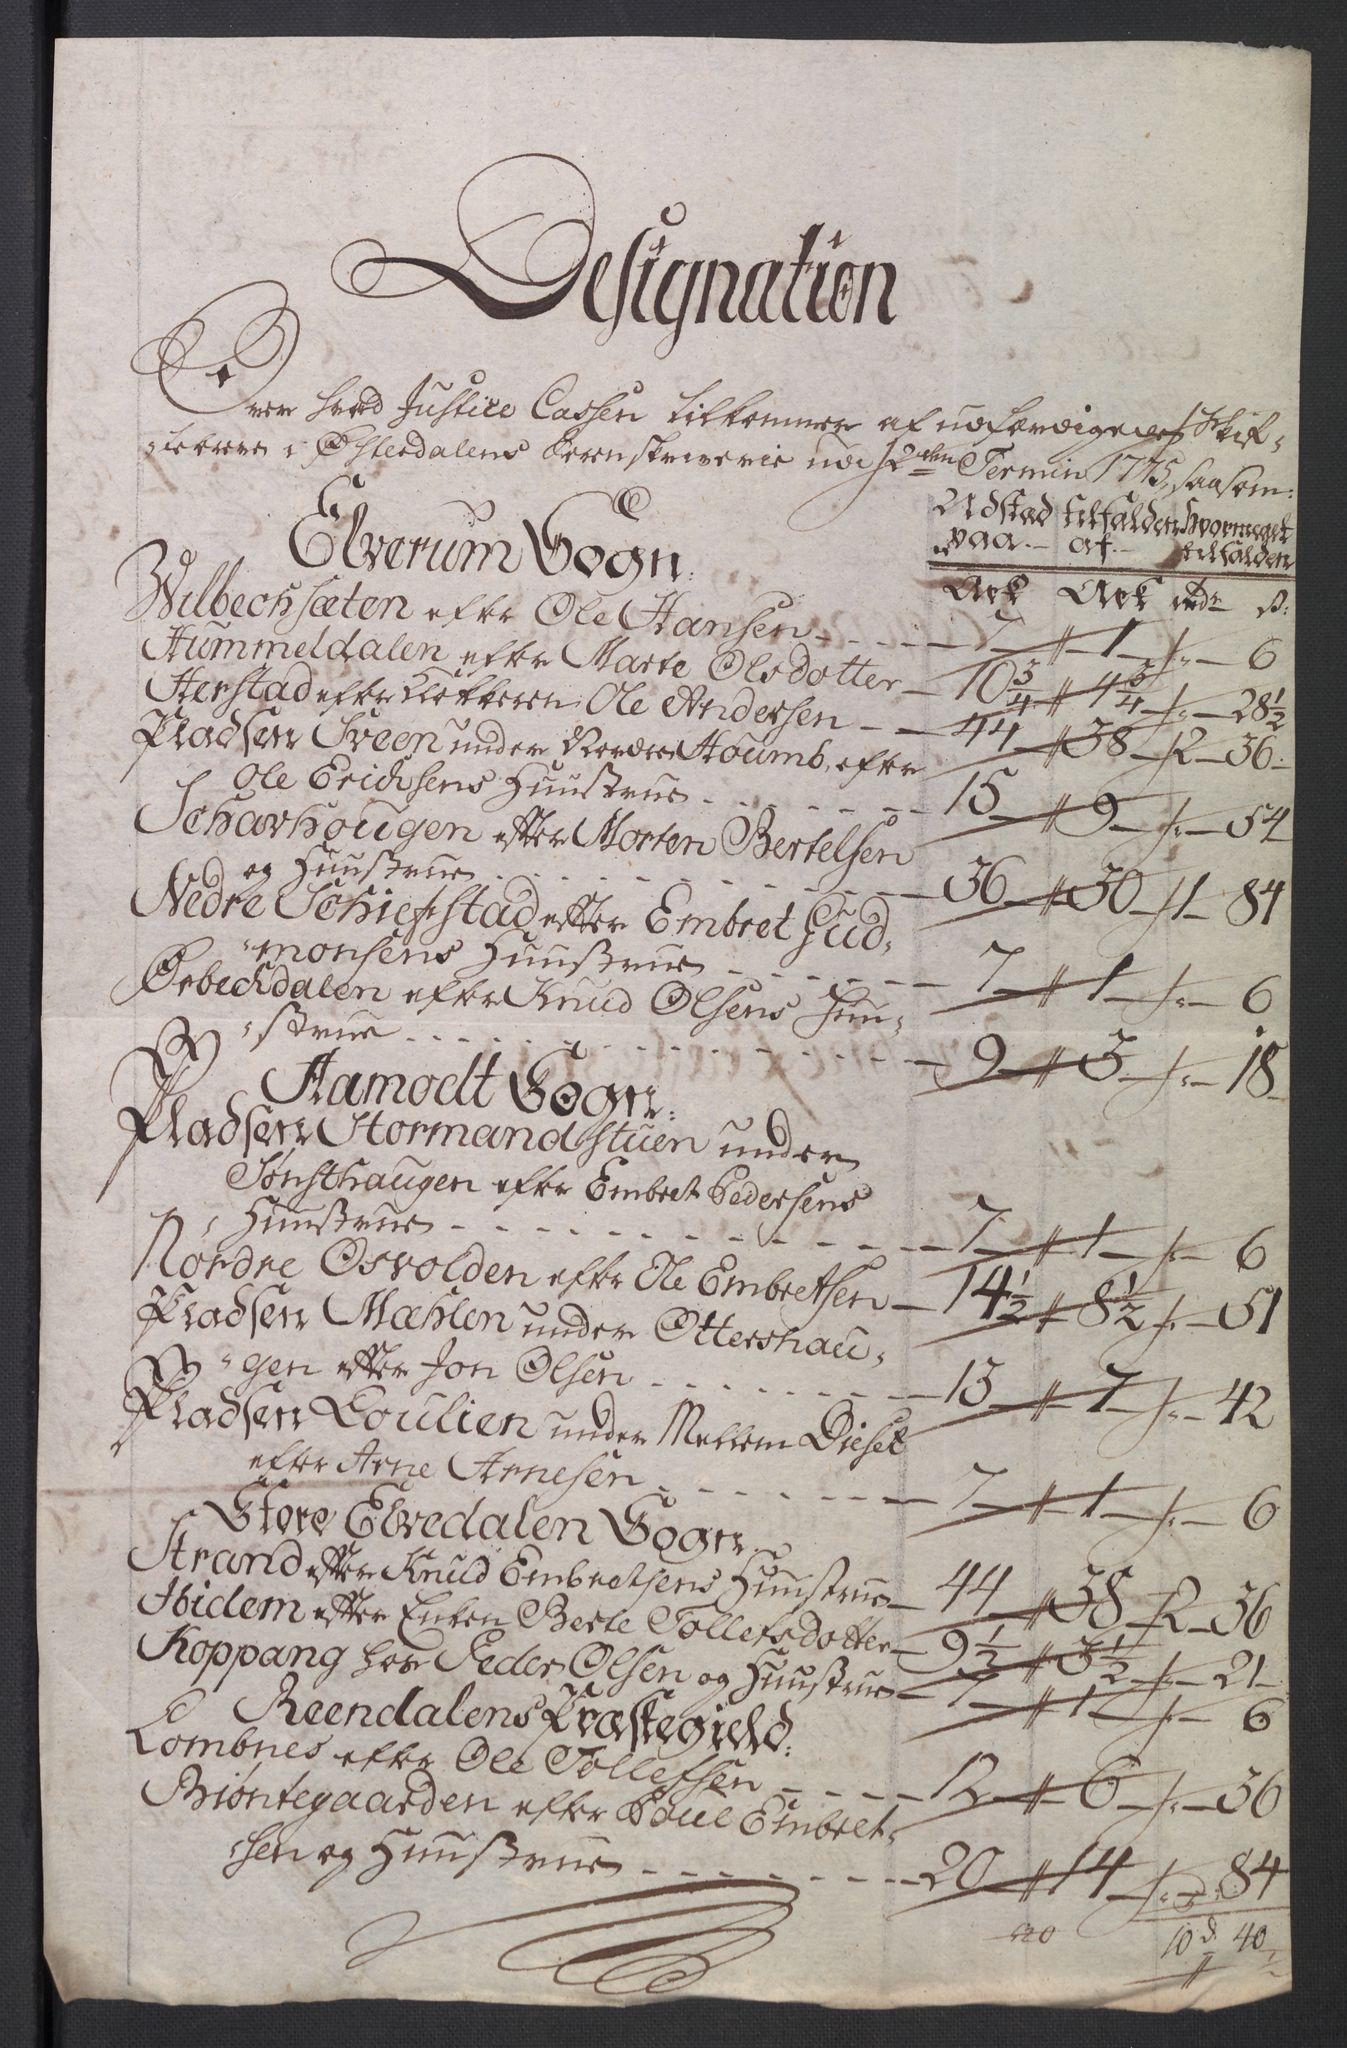 Designation
Over hvad Justice Cassen tilkommer af udfærdigede Skif-
terne i Østerdalens Sorenskriverie udi 2den Termin 1775, saasom:
Udstæd paa.- tilfalden af.- hvormeget tilfalden
Elverum Sogn: Ark Ark rdr ß:
Wilbechsæten efter Ole Hansen - - - 7 1 " 6
Hummeldalen efter Marte Olsdotter 10 3/4 4 3/4 " 28 1/2
Herstad efter Ole Andersen - - 44 38 2 36
Pladsen Sveen under Nordre Houmb, efter
Ole Erichsens Huustrue - - - 15 9 " 54
Scharhougen efter Morten Bertelsen
og Huustrue - - - 36 30 1 84
Nedre Schiefstad efter Embret Gud-
monsens Huustrue - - - 7 1 " 6
Ørbechdalen efter Knud Olsens Huu-
strue - - - 9 3 " 18
Aamodt Sogn:
Pladsen Stormandstuen under
Sønsthaugen efter Embret Pedersens
Huustrue - - - 7 1 " 6
Nordre Osvolden efter Ole Embretsen 14 1/2 8 1/2 " 51
Pladsen Mæhlen under Ottershau-
gen efter Jon Olsen - - - 13 7 " 42
Pladsen Loulien under Mellem Diset
efter Arne Arnesen - - - 7 1 " 6
Store Elvedalen Sogn:
Strand efter Knud Embretsens Huustrue 44 38 2 36
Ibidem efter Enken Berte Tollefsdotter 9 1/2 3 1/2 " 21
Koppang hos Peder Olsen og Huustrue 7 1 " 6
Reendalens Præstegield:
Lombnes efter Ole Tollefsen - - - 12 6 " 36
Biøntegaarden efter Poul Embret-
sen og Huustrue - - - 20 14 " 84
10 d 40